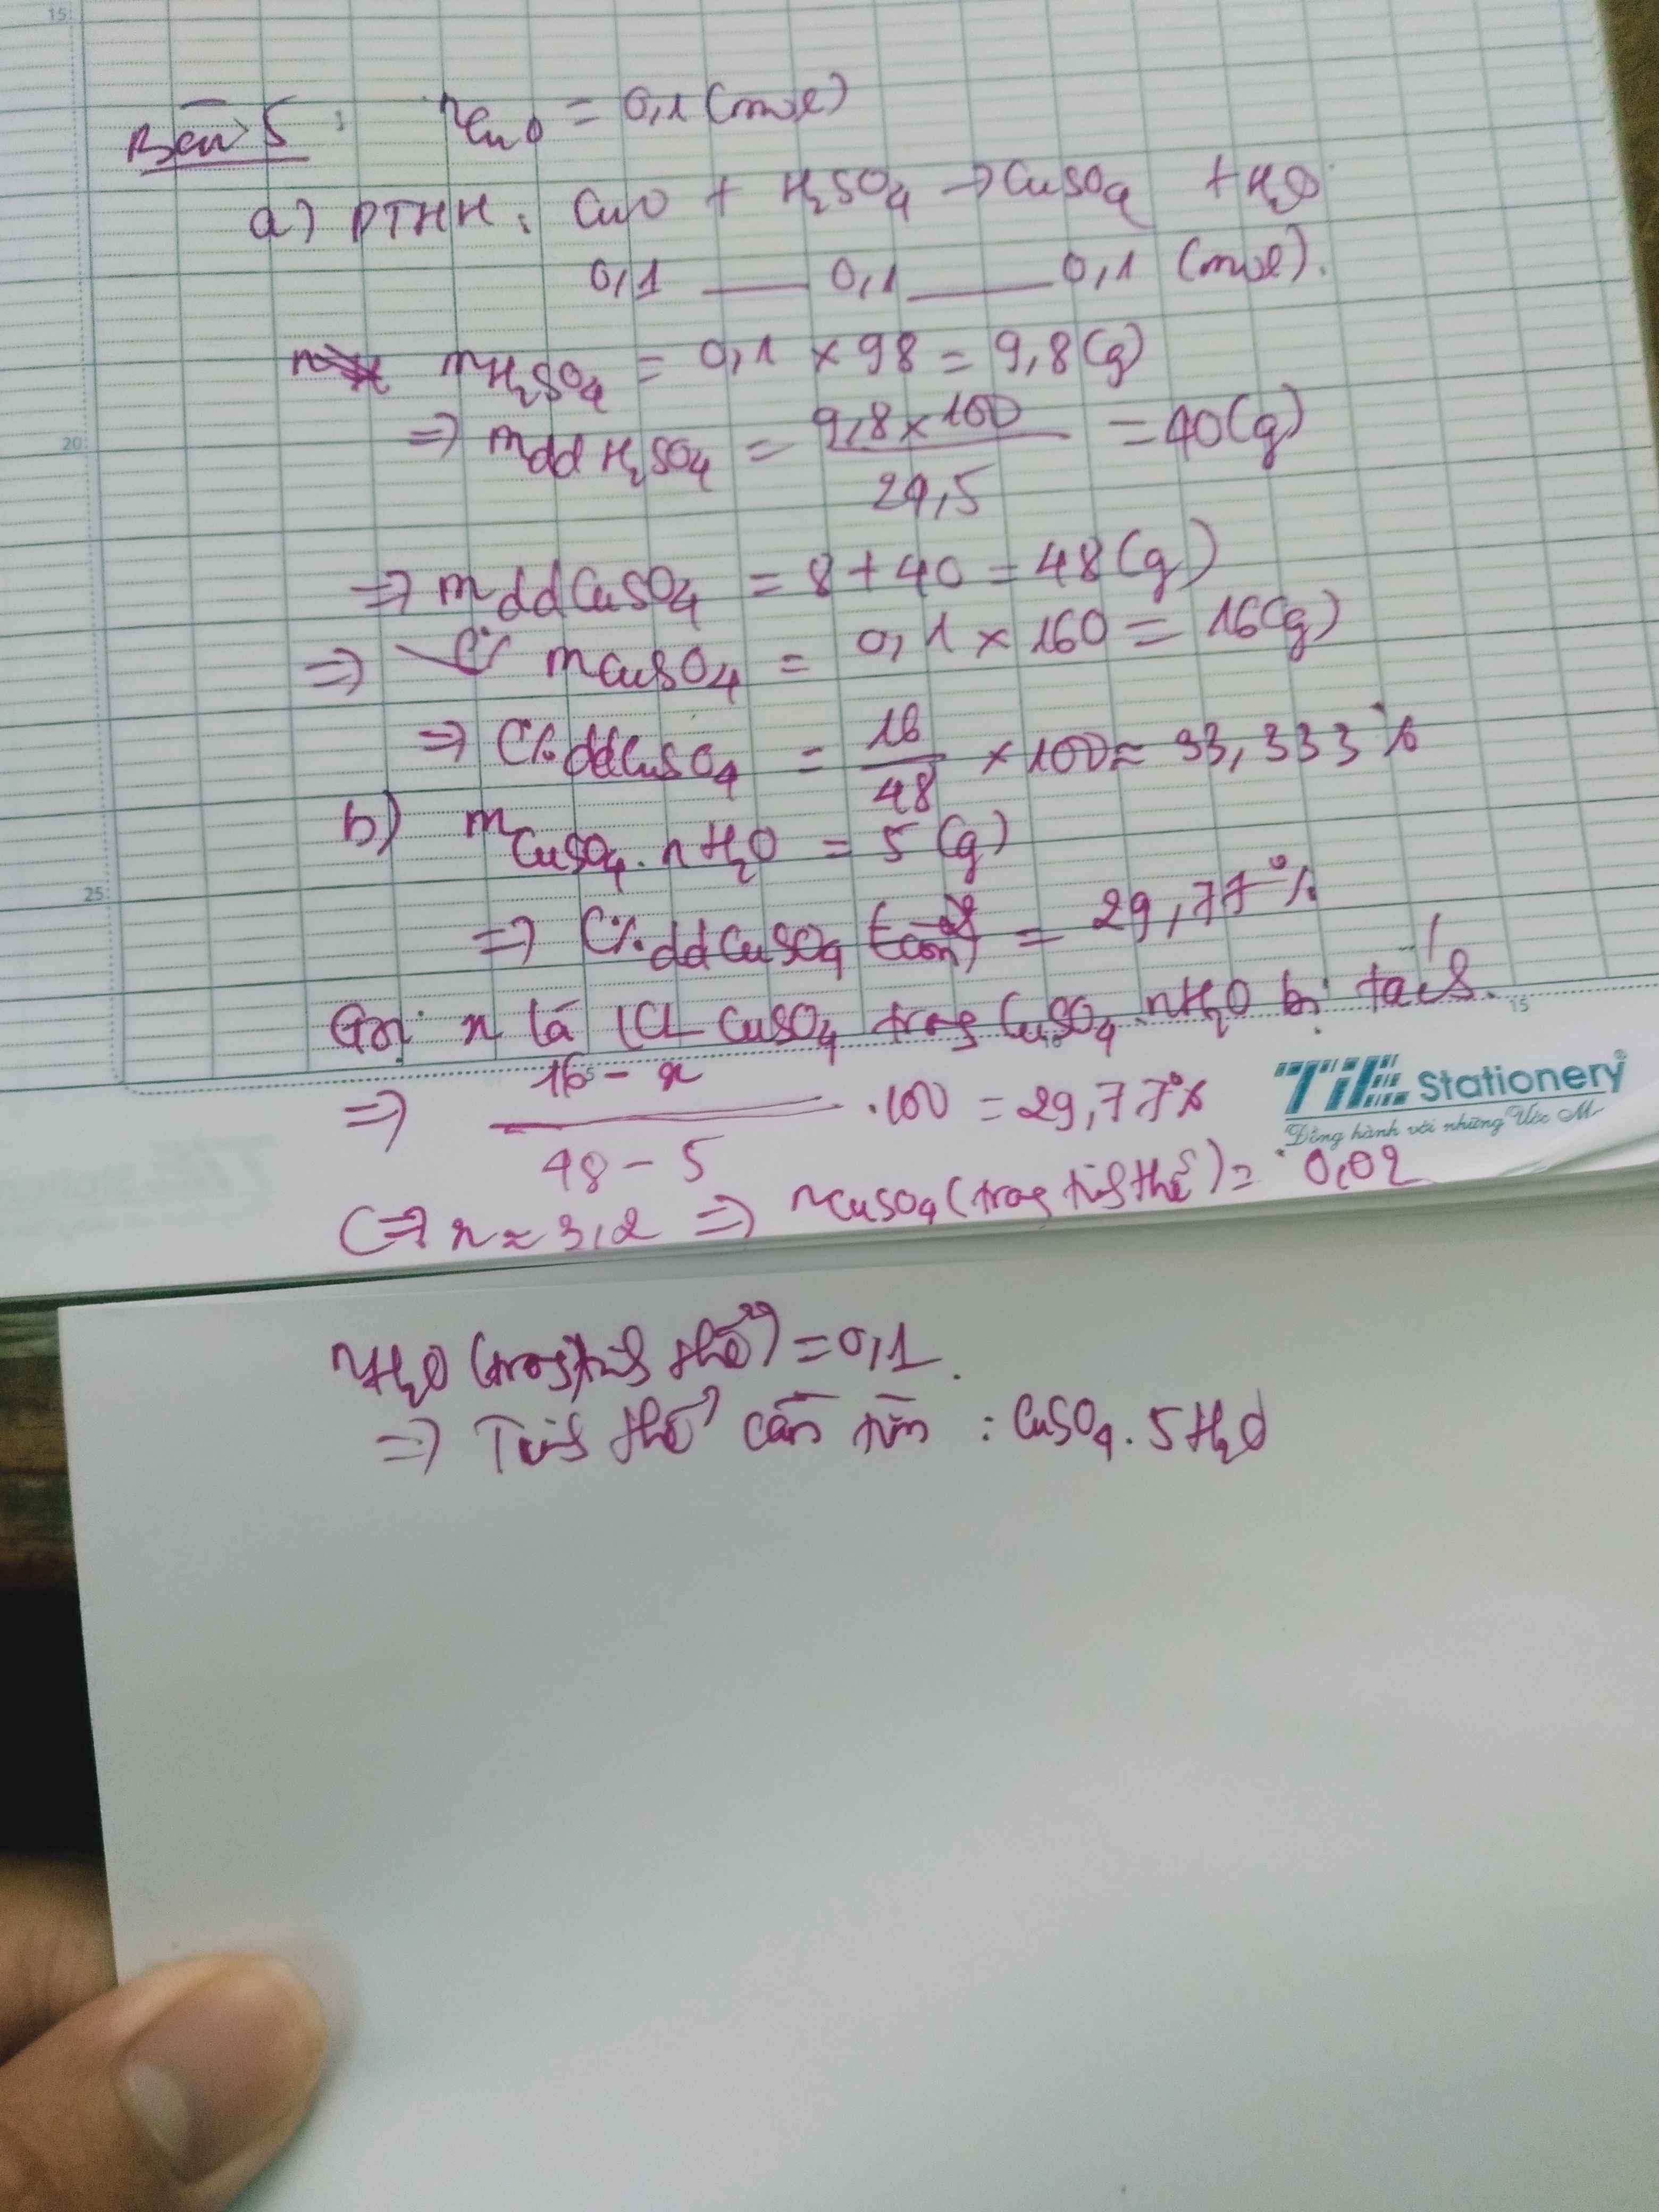 15
Bài 5: nCuO = 0,1 (mol)
a) PTHH: CuO + H₂SO₄ → CuSO₄ + H₂O
0,1 — 0,1 — 0,1 (mol).
mH₂SO₄ = 0,1 × 98 = 9,8 (g)
⇒ mdd H₂SO₄ = 9,8 × 100 / 24,5 = 40 (g)
20
⇒ mddCuSO₄ = 8 + 40 = 48 (g)
⇒ mCuSO₄ = 0,1 × 160 = 16 (g)
⇒ C%ddCuSO₄ = 16 / 48 × 100 ≈ 33,333%
b) mCuSO₄.nH₂O = 5 (g)
25
⇒ C%ddCuSO₄ (còn) = 29,77%
Gọi x là KL CuSO₄ trong CuSO₄.nH₂O bị tách.
15
⇒ 16 - x / 48 - 5 .100 = 29,77%
TiE Stationery
Đồng hành với những Ước Mơ
⇔ x ≈ 3,2 ⇒ nCuSO₄ (trong tinh thể) = 0,02
nH₂O (trong tinh thể) = 0,1.
⇒ Tinh thể cần tìm : CuSO₄.5H₂O